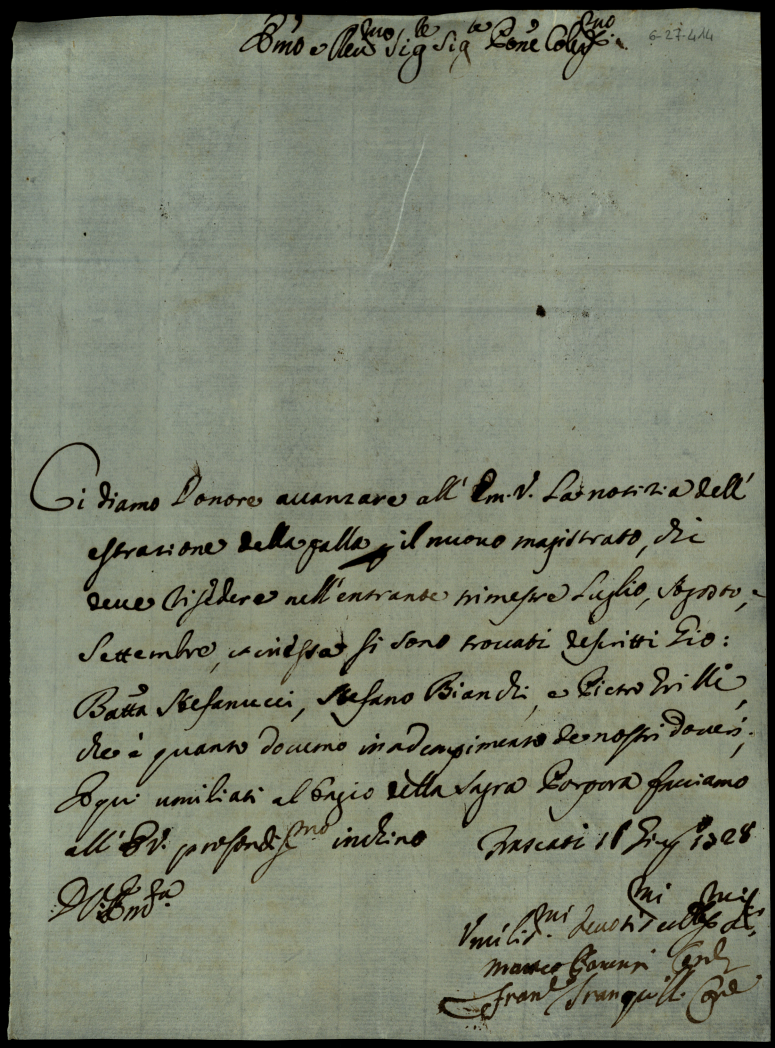 Em̃o e Rev.mo Sig.re Sig.re P'rone Col.mo
6-27-414
Ci diamo l'onore auanzare all' Em. V. La notizia dell'
estrazione della palla p. il nuouo magistrato, che
deue risedere nell'entrante trimestre Luglio, Agosto, e
Settembre, et in essa si sono trouati descritti Gio:
Batta Stefanucci, Stefano Bianchi, e Pietro Grilli,
che è quanto douemo in adempimento de nostri doueri,
E qui umiliati al bagio della Sagra Porpora facciamo
all' E.V. profondis.mo inchino Frascati 18 Giug.o 1728
D. V. Em.za
Vmiliss.mi Deuotis.mi
Matteo
Fran.co Tranquilli